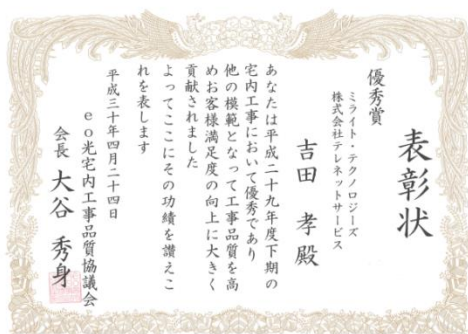 表彰状
優秀賞
ミライト・テクノロジーズ
株式会社テレネットサービス
吉田 孝殿
あなたは平成二十九年度下期の
宅内工事において優秀であり
他の模範となって工事品質を高
めお客様満足度の向上に大きく
貢献されました
よってここにその功績を讃えこ
れを表します
平成三十年四月二十四日
eo光宅内工事品質協議会
会長 大谷 秀身